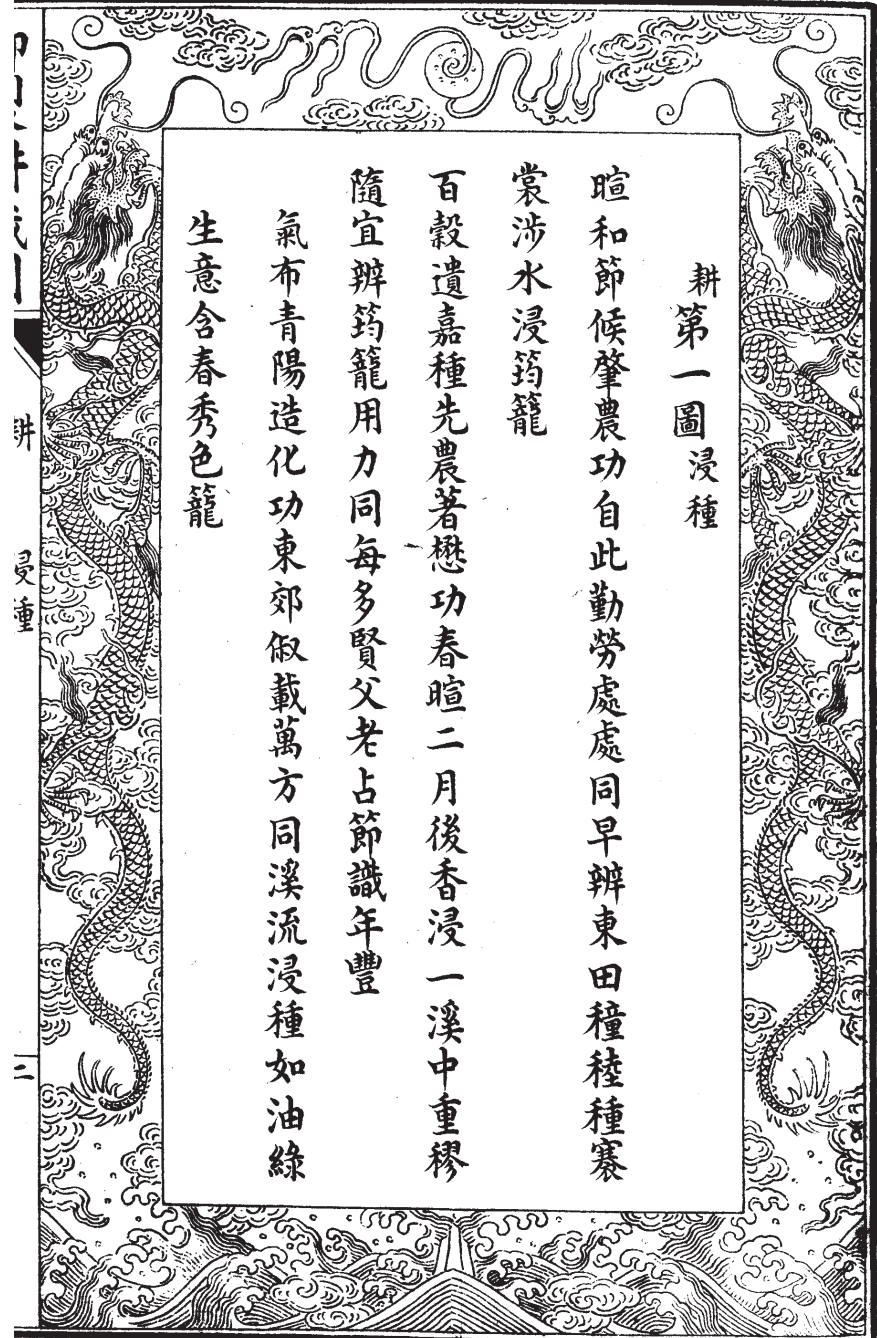 耕第一圖浸種
暄和節候肇農功自此勤勞處處同早辨東田穜稑種褰
裳涉水浸筠籠
百穀遺嘉種先農著懋功春暄二月後香浸一溪中重穋
隨宜辨筠籠用力同每多賢父老占節識年豐
氣布青陽造化功東郊俶載萬方同溪流浸種如油綠
生意含春秀色籠
耕
浸種
二